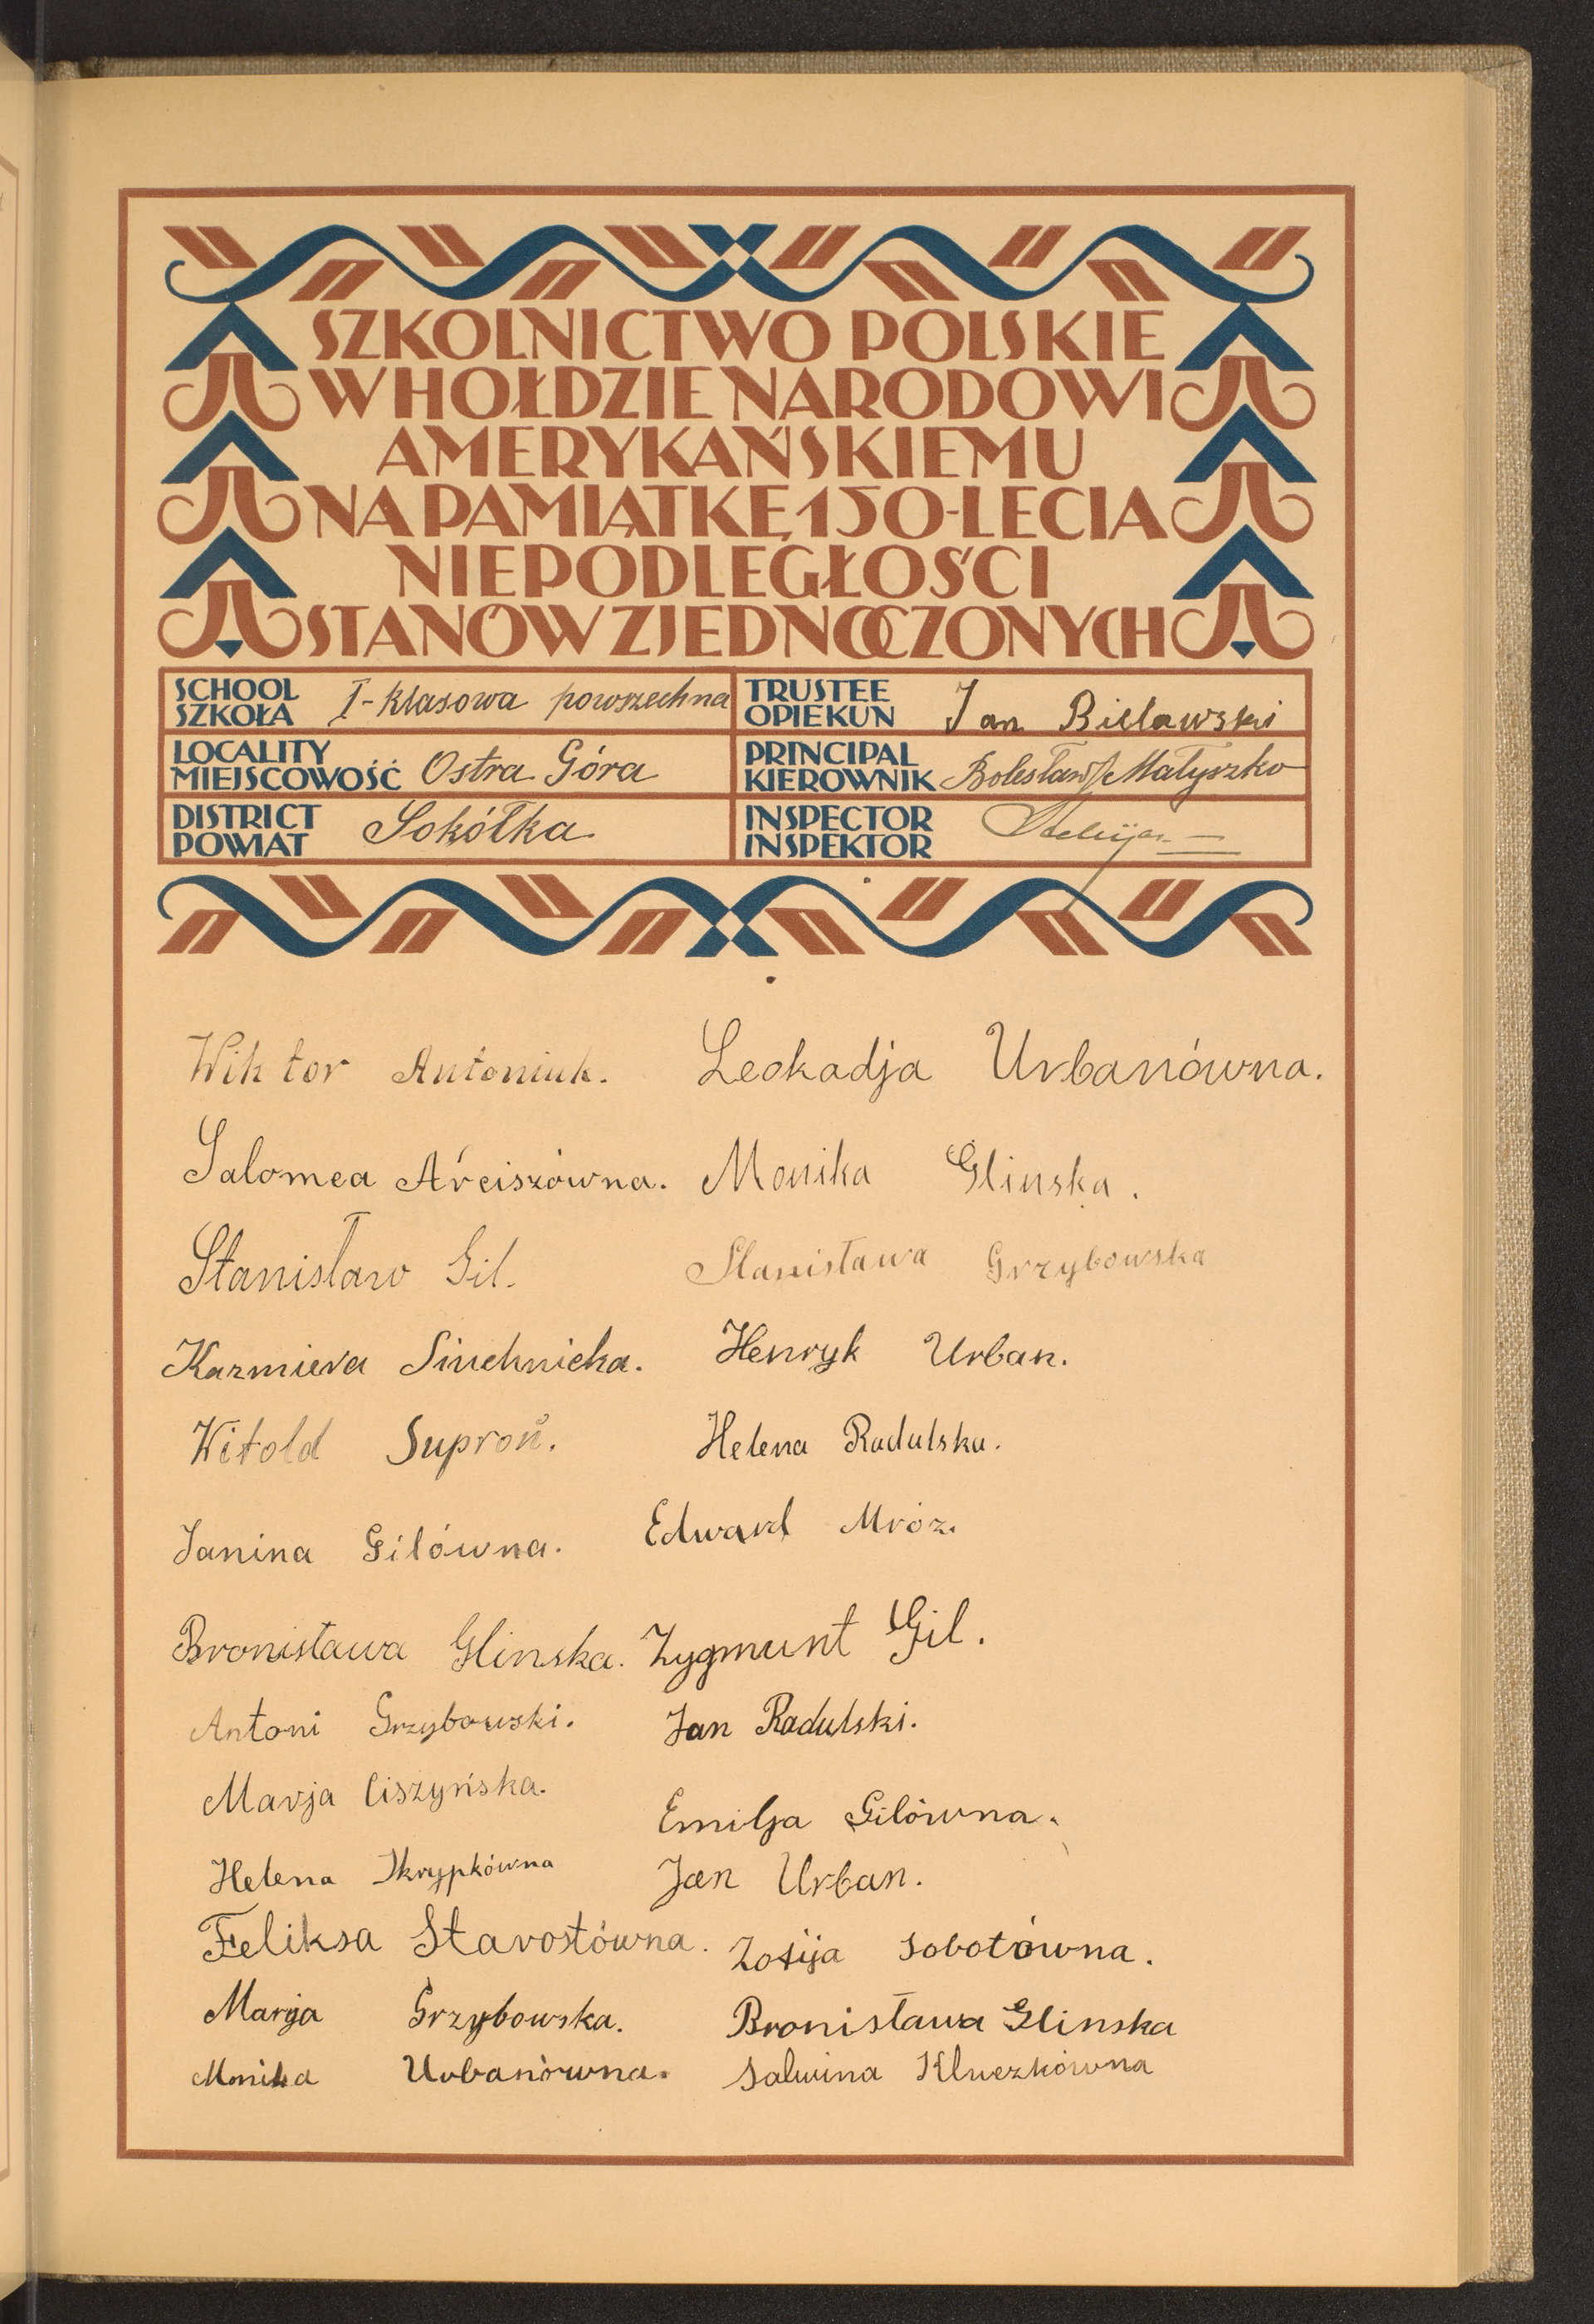 SZKOLNICTWO POLSKIE
W HOŁDZIE NARODOWI
AMERYKAŃSKIEMU
NA PAMIĄTKĘ 150-LECIA
NIEPODLEGŁOŚCI
STANÓW ZJEDNOCZONYCH
SCHOOL
SZKOŁA
I-klasowa powszechna
TRUSTEE
OPIEKUN
Jan Bielawski
LOCALITY
MIEJSCOWOŚĆ
Ostra Góra
PRINCIPAL
KIEROWNIK
Bolesław Małyszko
DISTRICT
POWIAT
Sokółka
INSPECTOR
INSPEKTOR
Wiktor Antoniuk.
Salomea Arciszówna.
Stanisław Gil.
Kazmiera Siuchnicka.
Witold Suproń.
Janina Gilówna.
Bronisława Glinska.
Antoni Grzybowski.
Marja Ciszyńska.
Helena Skrypkówna
Feliksa Starostówna.
Marja Grzybowska.
Monika Urbanówna.
Leokadja Urbanówna.
Monika Glinska.
Stanisława Grzybowska
Henryk Urban.
Helena Radulska.
Edward Mróz.
Zygmunt Gil.
Jan Radulski.
Emilja Gilówna.
Jan Urban.
Zofija Sobotówna.
Bronisława Glinska
Salwina Kluczkówna